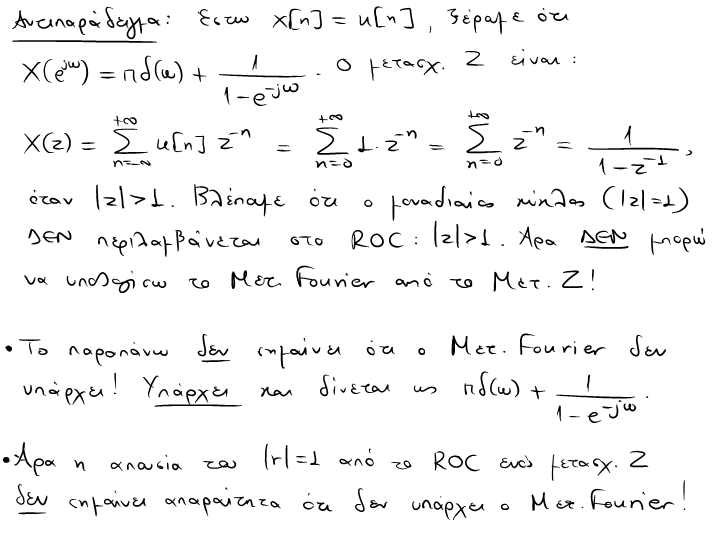 Αντιπαράδειγμα: Έστω x[n] = u[n], ξέραμε ότι
X(e^{jω}) = πδ(ω) + \frac{1}{1-e^{-jω}}. Ο μετασχ. Z είναι:
X(z) = \sum_{n=-∞}^{+∞} u[n] z^{-n} = \sum_{n=0}^{+∞} 1. z^{-n} = \sum_{n=0}^{+∞} z^{-n} = \frac{1}{1-z^{-1}},
όταν |z|>1. Βλέπουμε ότι ο μοναδιαίος κύκλος (|z|=1)
ΔΕΝ περιλαμβάνεται στο ROC: |z|>1. Άρα ΔΕΝ μπορώ
να υπολογίσω το Μετ. Fourier από το Μετ. Z!
• Το παραπάνω δεν σημαίνει ότι ο Μετ. Fourier δεν
υπάρχει! Υπάρχει και δίνεται ως πδ(ω) + \frac{1}{1-e^{-jω}}.
• Άρα η απουσία του |r|=1 από το ROC ενός μετασχ. Z
δεν σημαίνει απαραίτητα ότι δεν υπάρχει ο Μετ. Fourier!